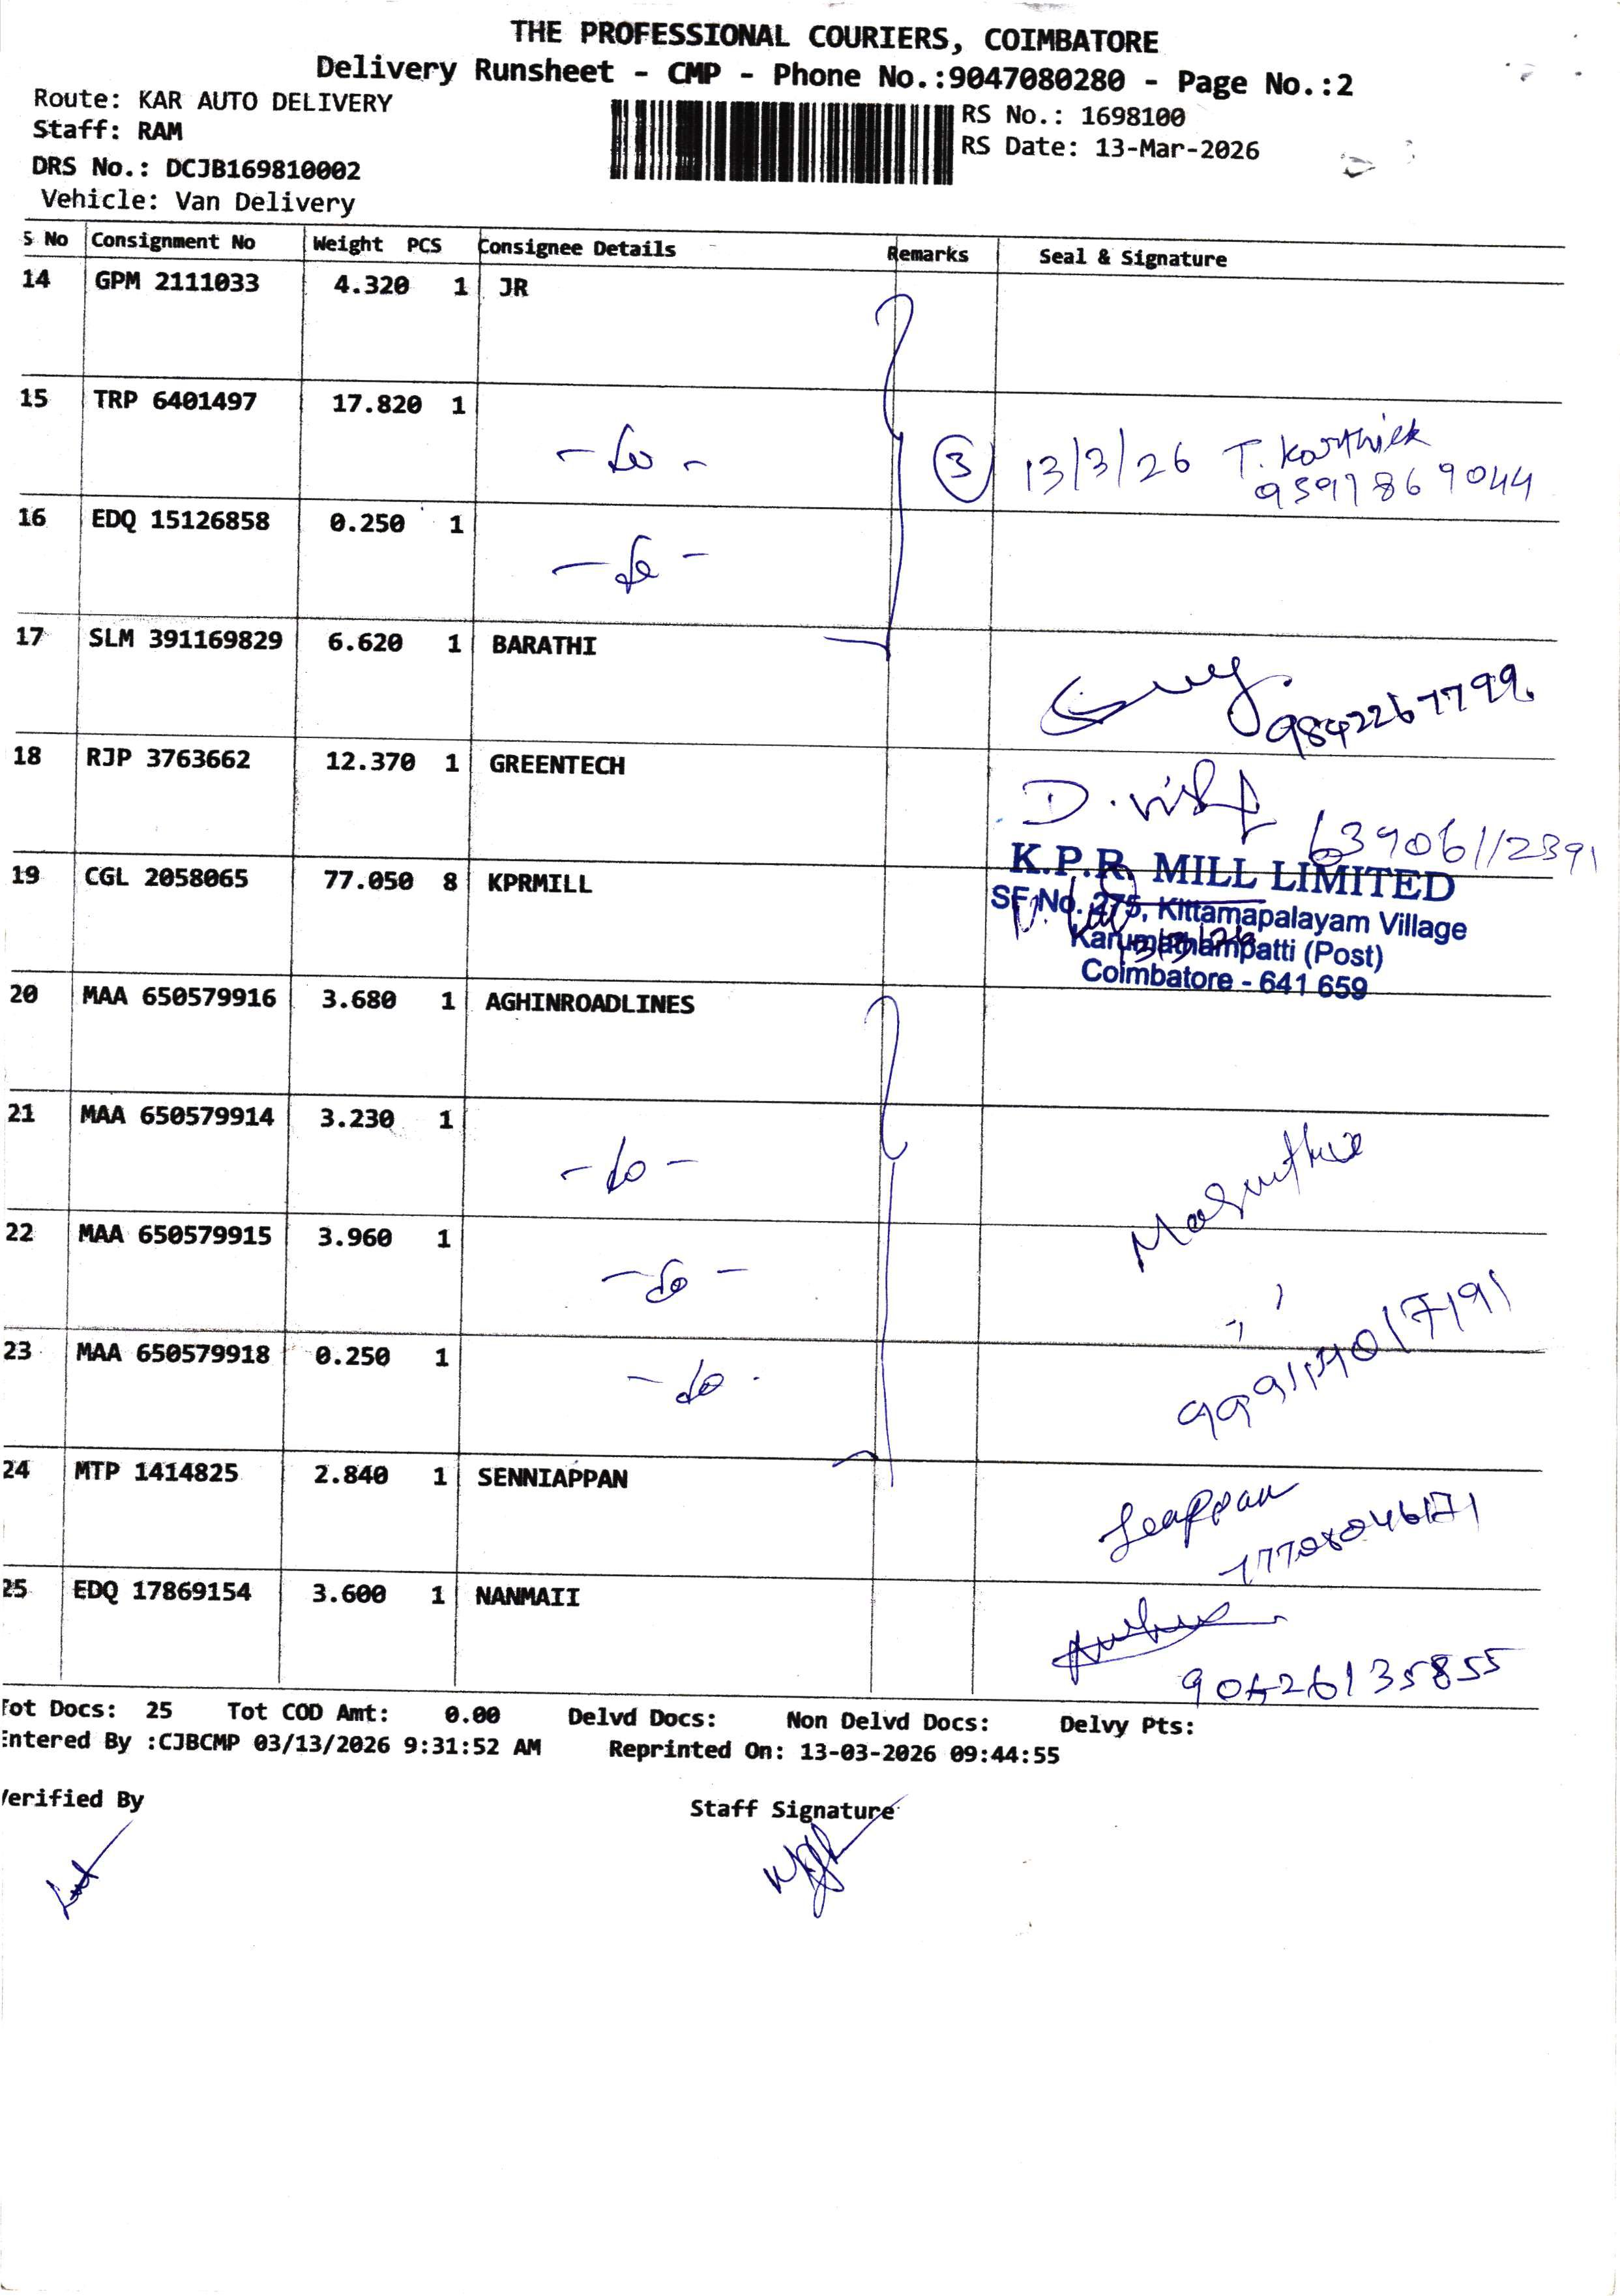 THE PROFESSIONAL COURIERS, COIMBATORE
Delivery Runsheet - CMP - Phone No.:9047080280 - Page No.:2
Route: KAR AUTO DELIVERY
RS No.: 1698100
Staff: RAM
RS Date: 13-Mar-2026
DRS No.: DCJB169810002
Vehicle: Van Delivery
S No Consignment No Weight PCS Consignee Details Remarks Seal & Signature
14 GPM 2111033 4.320 1 JR
15 TRP 6401497 17.820 1
- do - 3 13/3/26 T. Karthick
9597869044
16 EDQ 15126858 0.250 1
- do -
17 SLM 391169829 6.620 1 BARATHI
9842267799.
18 RJP 3763662 12.370 1 GREENTECH
D.
K.P.R. MILL LIMITED
19 CGL 2058065 77.050 8 KPRMILL
SF No. 275, Kittamapalayam Village
Karumathampatti (Post)
Coimbatore - 641 659
20 MAA 650579916 3.680 1 AGHINROADLINES
21 MAA 650579914 3.230 1
- do -
22 MAA 650579915 3.960 1
- do -
23 MAA 650579918 0.250 1
- do -
24 MTP 1414825 2.840 1 SENNIAPPAN
25 EDQ 17869154 3.600 1 NANMAII
Tot Docs: 25 Tot COD Amt: 0.00 Delvd Docs: Non Delvd Docs: Delvy Pts:
Entered By :CJBCMP 03/13/2026 9:31:52 AM Reprinted On: 13-03-2026 09:44:55
Verified By Staff Signature